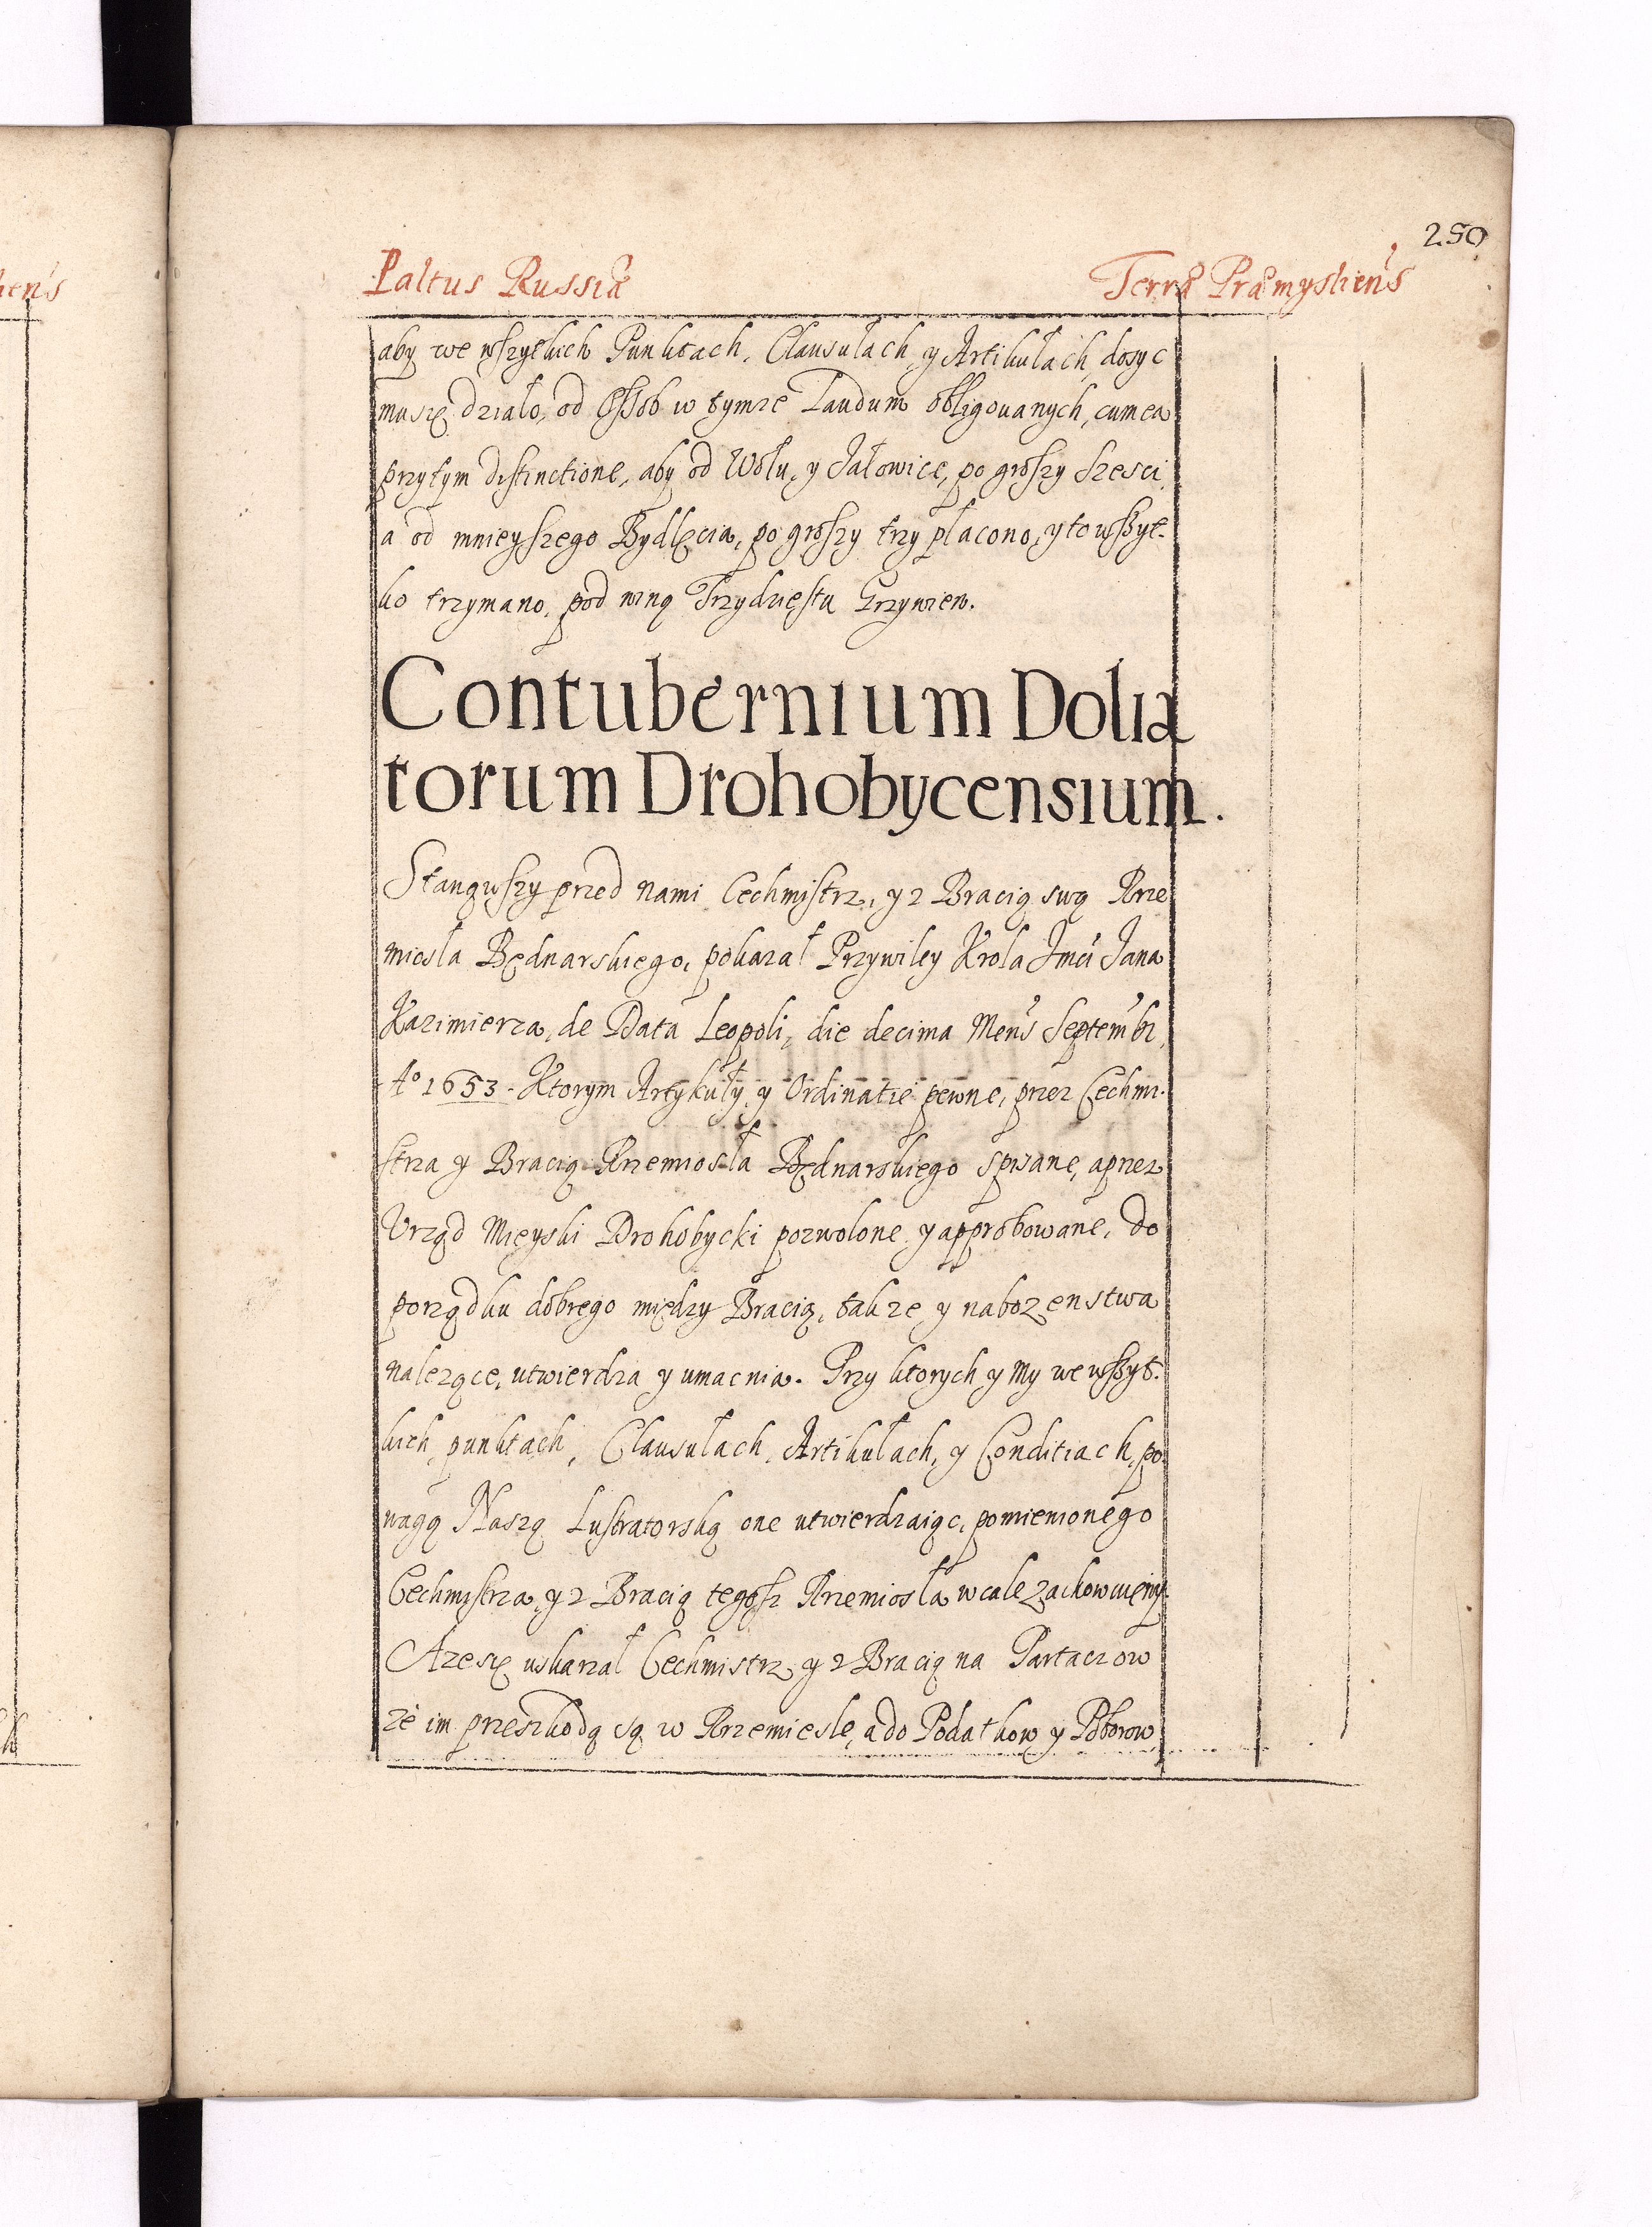 250
Paltus Russiæ Terræ Præmysliens
aby we wszytkich Punktach, Clausułach, y Artikułach, dosyc
mu się działo, od Ossob w tymze Laudum obligowanych, cum ea
przytym distinctione, aby od Wołu, y Jałowice, po groszy szesci
a od mnieyszego Bydlęcia, po groszy trzy płacono, y to wszyt-
ko trzymano, pod winą Trzydziestu Grzywien.
Contubernium Dolia
torum Drohobycensium.
Stanąwszy przed nami Cechmistrz, y z Bracią swą Rze
miosła Bednarskiego, pokazał Przywiley Krola Jmći Jana
Kazimierza, de Data Leopoli, die decima Mens Septembr
Aº 1653. Ktorym Artykuły y Ordinatie pewne, przez Cechmi-
strza y Bracią Rzemiosła Będnarskiego spisane, a przez
Vrząd Mieyski Drohobycki pozwolone y approbowane, do
porządku dobrego między Bracią, także y nabozenstwa
nalezące, utwierdza y umacnia. Przy ktorych y my we wszyt-
kich punktach, Clausułach, Artikułach, y Conditiach, po
wagą Naszą Lustratorską one utwierdzaiąc, pomienionego
Cechmistrza, y z Bracią tegosz Rzemiosła wcale zachowuiemy.
A ze się uskarzał Cechmistrz y z Bracią na Partaczow
ze im przeszkodą są w Rzemieśle, a do Podatkow y Poborow